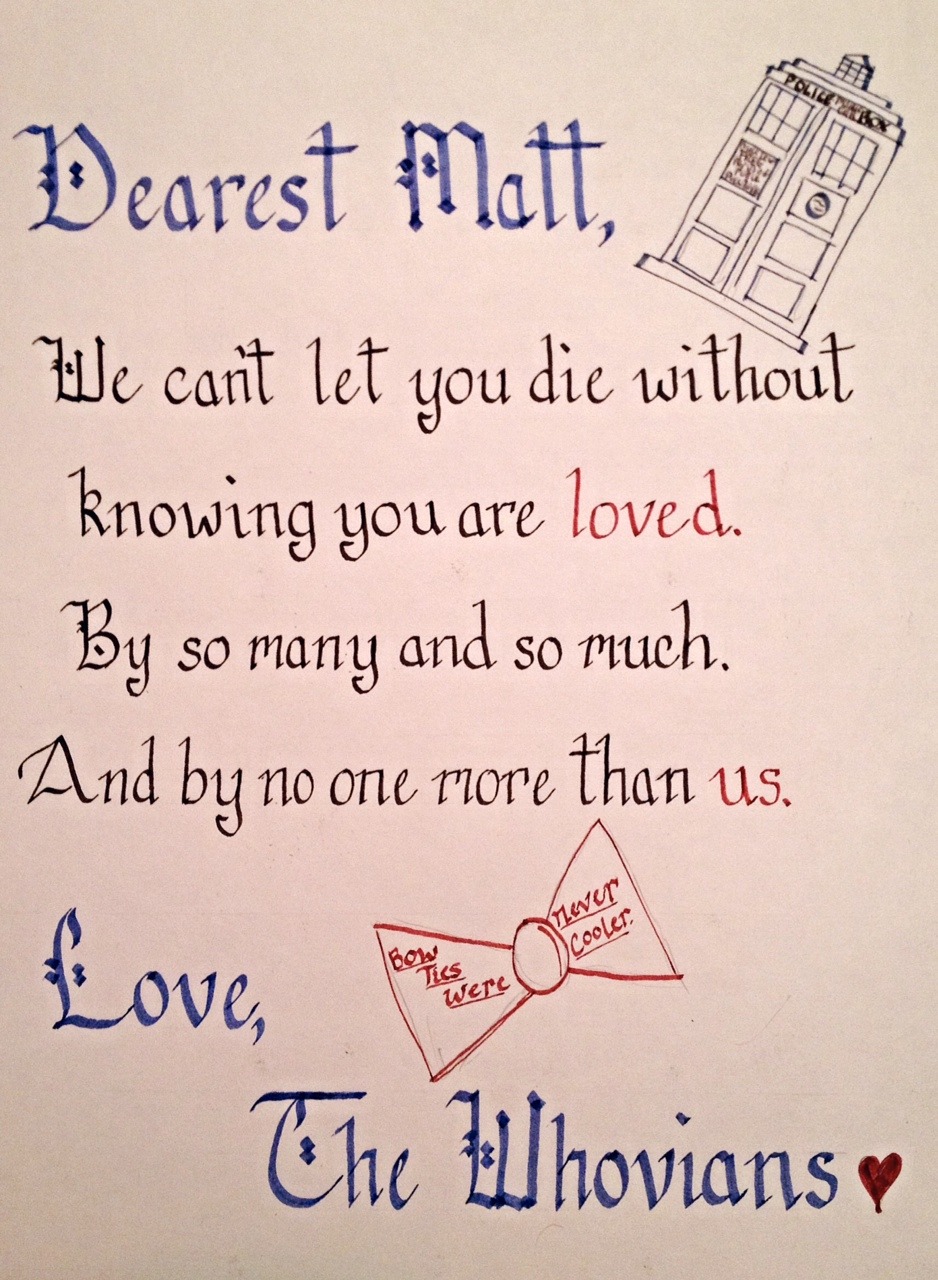 Dearest Matt,
POLICE BOX
We can't let you die without
knowing you are loved.
By so many and so much.
And by no one more than us.
Bow
Ties
were
never
cooler.
Love,
The Whovians